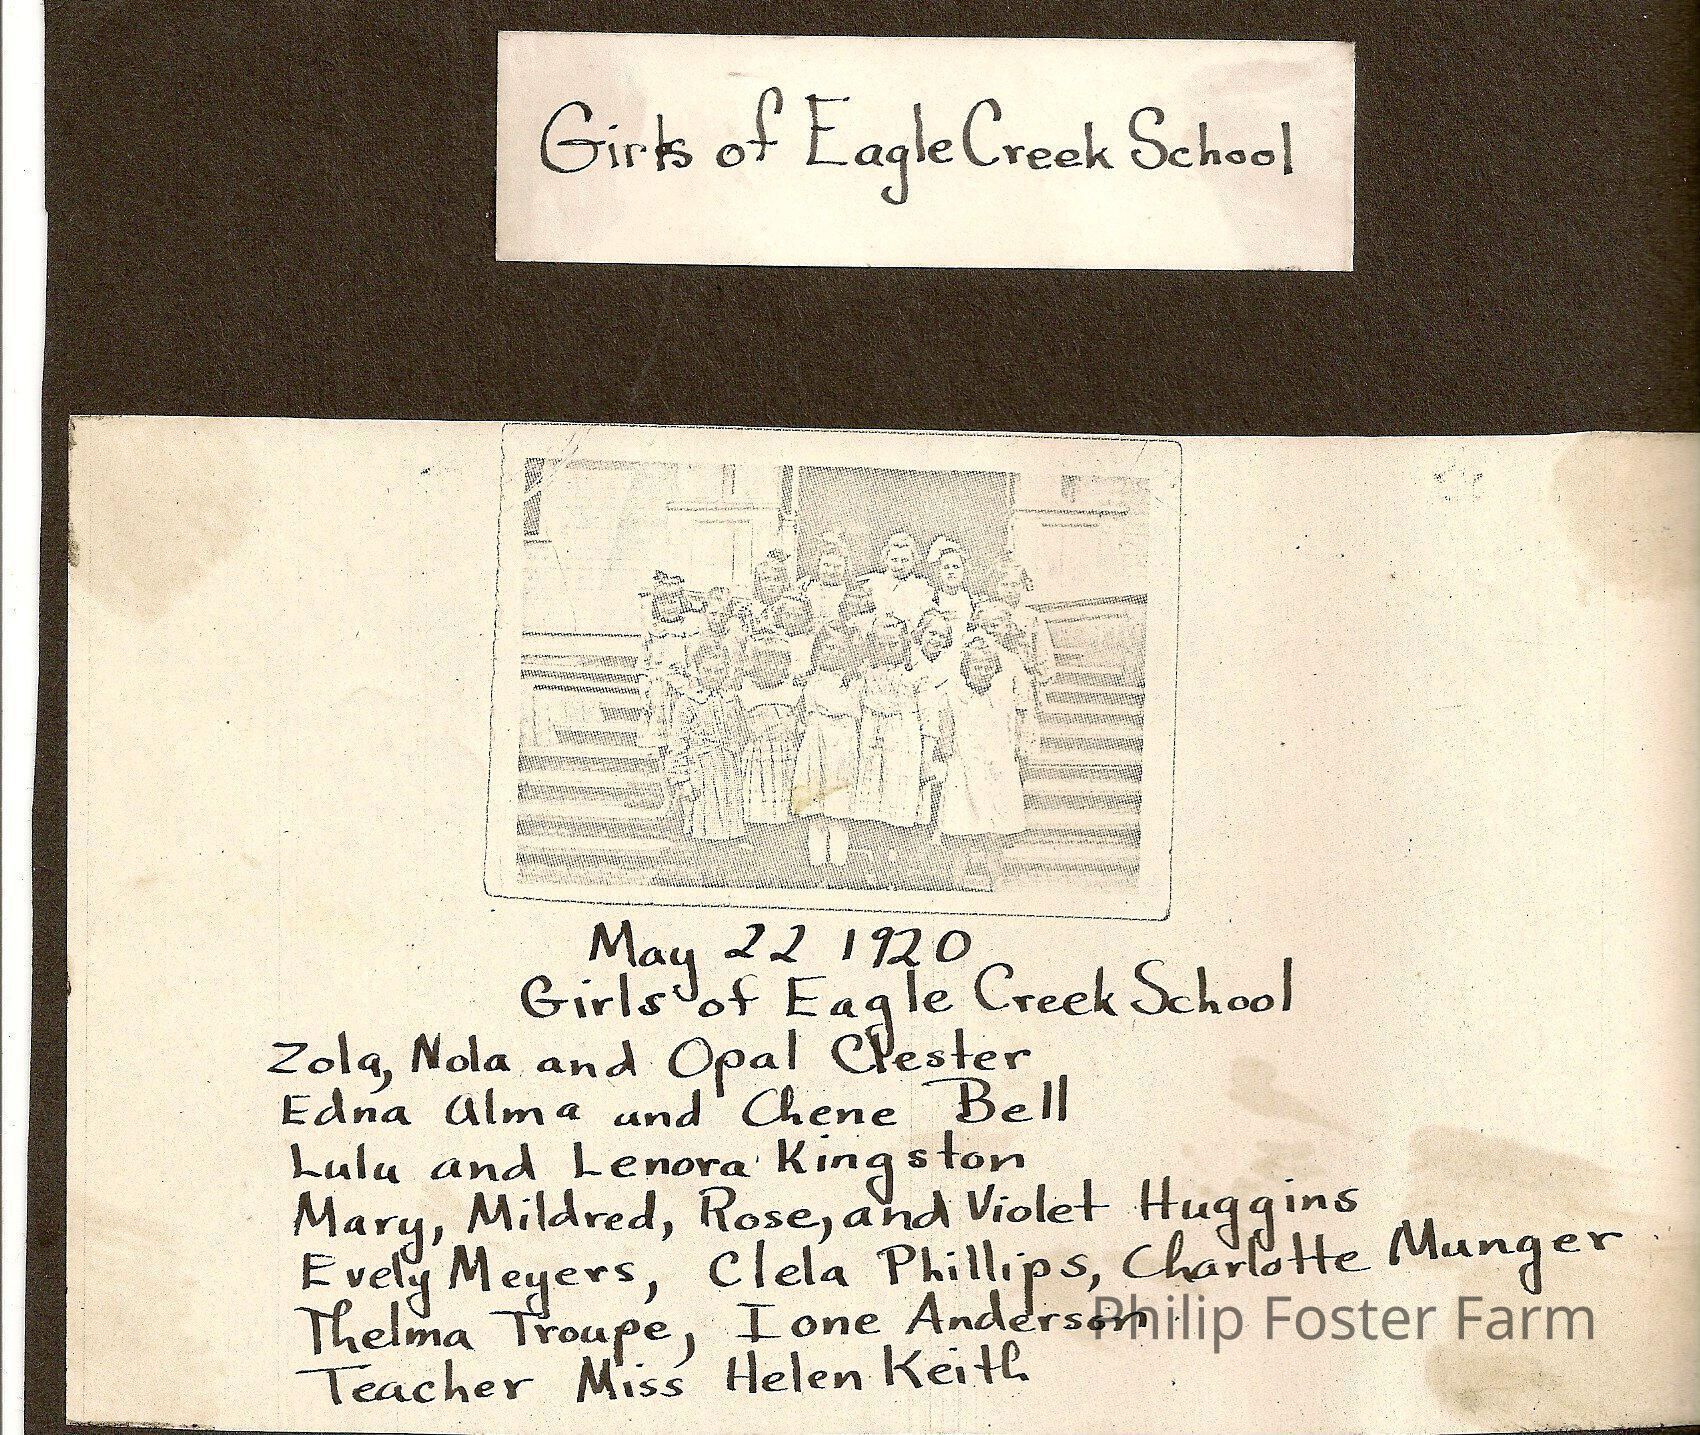 Girls of Eagle Creek School
May 22 1920
Girls of Eagle Creek School
Zola, Nola and Opal Clester
Edna Alma and Chene Bell
Lulu and Lenora Kingston
Mary, Mildred, Rose, and Violet Huggins
Evely Meyers, Clela Phillips, Charlotte Munger
Thelma Troupe, Ione Anderson
Philip Foster Farm
Teacher Miss Helen Keith